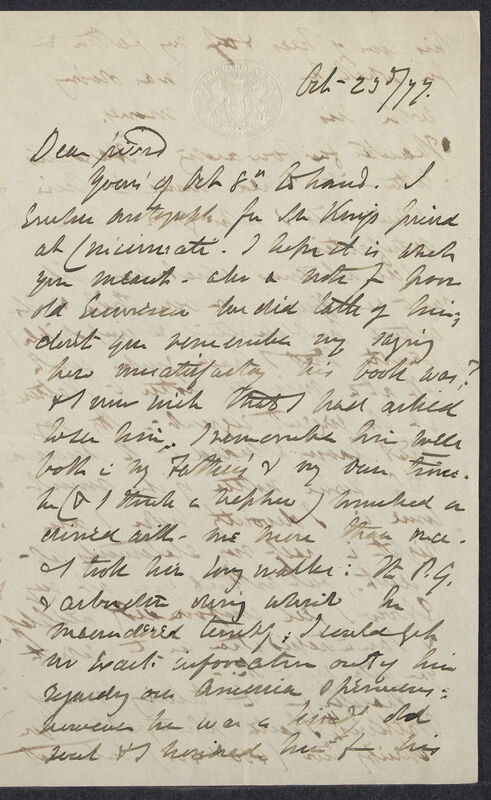 ROYAL GARDENS KEW
Oct 23d/77.
Dear friend
Yours of Oct 8th to hand. I
Enclose autograph for Mr Kings friend
at Cincinnati. I hope it is what
you meant. also a note of poor
old
don't you remember my saying
how unsatisfactory his book was?
& I now wish that I had asked
to see him. I remember him well
both in my Father's & my own time.
he (& I think a nephew) lunched or
dined with me more than once.
& I took him long walks in the P.G.
& arboretum during which he
maundered terribly; I could get
no exact information out of him
regarding our American specimens:
however he was a kind old
soul & I honored him for his